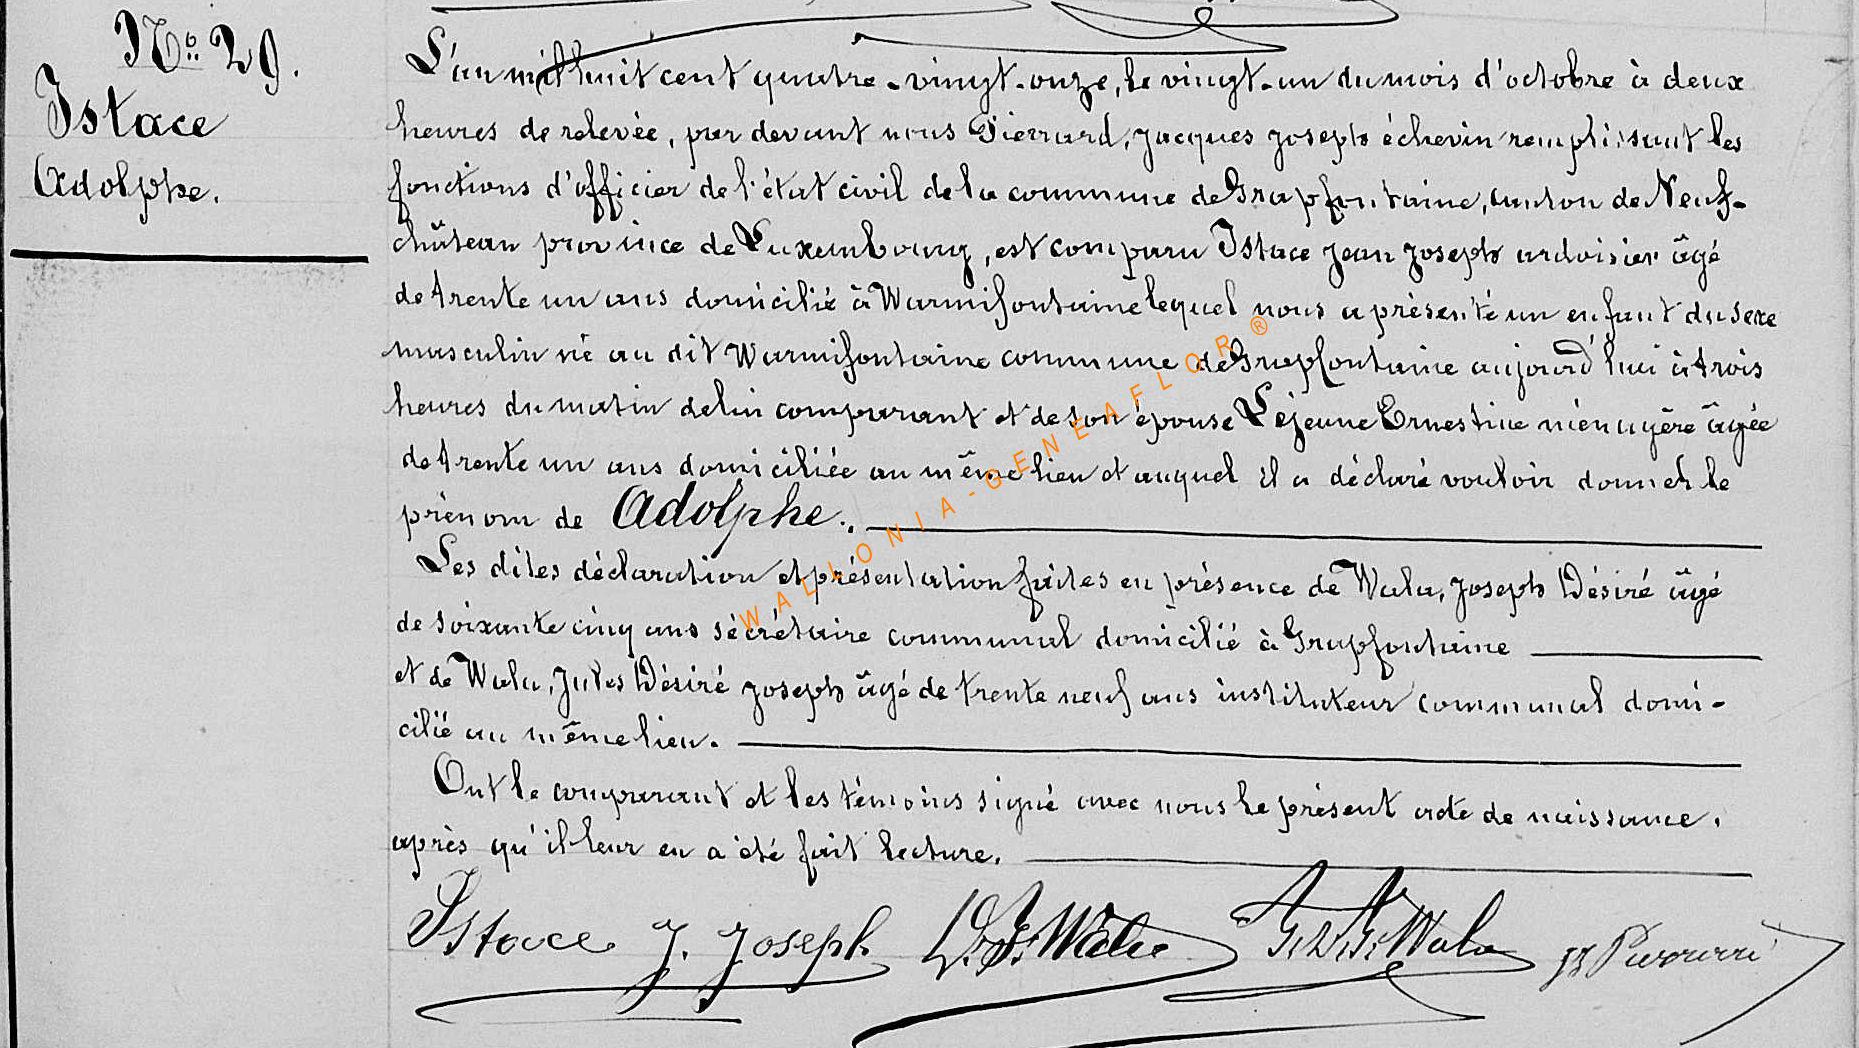 No. 29.
Istace
Adolphe.
L'an mil huit cent quatre-vingt-onze, le vingt-un du mois d'octobre à deux
heures de relevée, par devant nous Pierrard, Jacques Joseph échevin remplissant les
fonctions d'officier de l'état civil de la commune de Grapfontaine, canton de Neuf-
château province de Luxembourg, est comparu Istace Jean Joseph ardoisier âgé
de trente un ans domicilié à Warmifontaine lequel nous a présenté un enfant du sexe
masculin né au dit Warmifontaine commune de Grapfontaine aujourd'hui à trois
heures du matin de lui comparant et de son épouse Léjeune Ernestine ménagère âgée
de trente un ans domiciliée au même lieu et auquel il a déclaré vouloir donner le
prénom de Adolphe.
Les dites déclaration et présentation faites en présence de Wala, Joseph Désiré âgé
de soixante cinq ans sécrétaire communal domicilié à Grapfontaine
et de Wala, Jules Désiré Joseph âgé de trente neuf ans instituteur communal domi-
cilié au même lieu.
Ont le comparant et les témoins signé avec nous le présent acte de naissance,
après qu'il leur en a été fait lecture.
Istace J. Joseph D. J. Wala J. D. J. Wala JJ Pierrard
WALLONIA-GENEAFLOR®